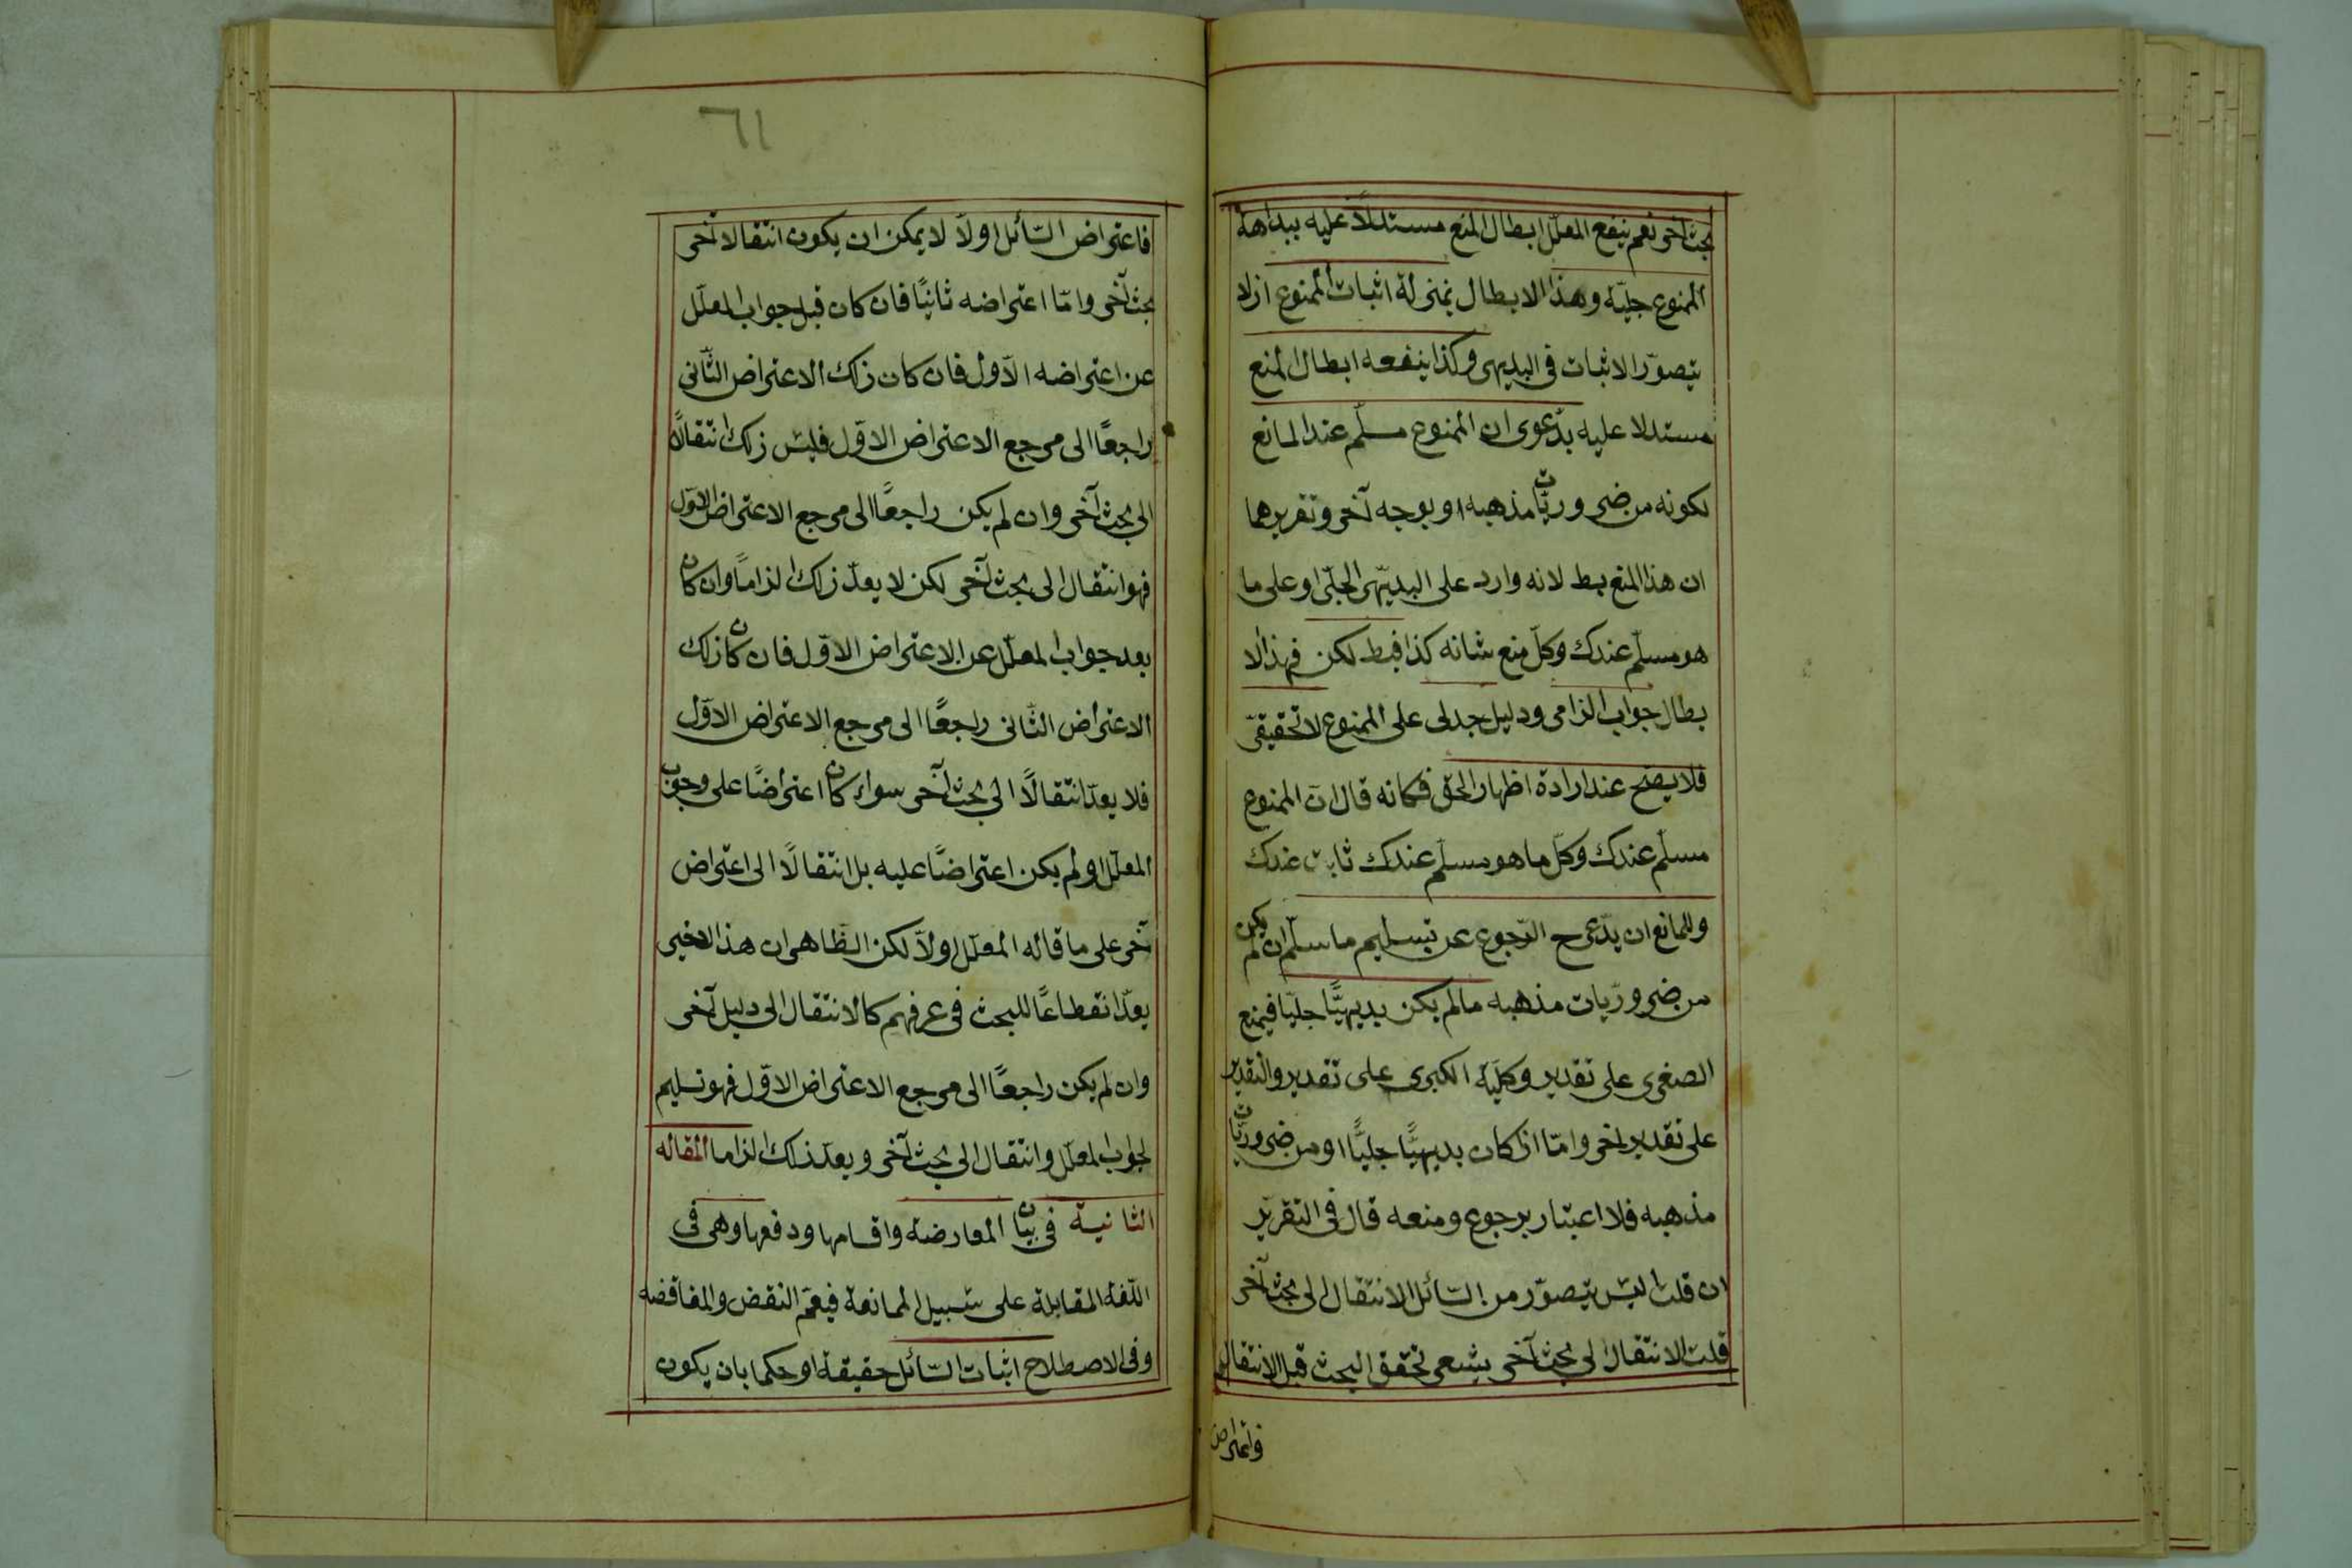 بحث آخر نعم ينفع المعلّل ابطال المنع مستدلاًّ عليه ببداهة
الممنوع جليّة وهذا الابطال بمنزلة اثبات الممنوع اذ لا
يتصوّر الاثبات فى البديهى وكذا ينفعه ابطال المنع
مستدلا عليه بدعوى ان الممنوع مسلّم عند المانع
لكونه من ضروريّات مذهبه او بوجه آخر وتقريرهما
ان هذا المنع بط لانه وارد على البديهى الجلىّ او على ما
هو مسلّم عندك وكلّ منع شانه كذا فبط لكن فهذا الا
بطال جواب الزامى ودليل جدلى على الممنوع لا تحقيقىّ
فلا يصح عند ارادة اظهار الحق فكانه قال انّ الممنوع
مسلّم عندك وكلّ ما هو مسلّم عندك ثابت عندك
وللمانع ان يدّعى ح الرّجوع عن تسليم ما سلّم ان لم يكن
من ضروريّات مذهبه مالم يكن بديهيًّا جليّا فيمنع
الصغرى على تقدير وكليّة الكبرى على تقدير والتقدير
على تقدير اخر وامّا اذا كان بديهيًّا جليًّا او من ضروريّات
مذهبه فلا اعتبار برجوع ومنعه قال فى التقرير
ان قلت ليس يتصوّر من السّائل الانتقال الى بحث آخر
قلت الانتقال الى بحث آخر يشعر تحقق البحث قبل الانتقال
فاعتراض
٦١
فاعتراض السّائل اولاّ لا يمكن ان يكون انتقالا آخر
بحث آخر وامّا اعتراضه ثانيًا فان كان قبل جواب المعلّل
عن اعتراضه الاّول فان كان ذلك الاعتراض الثّانى
راجعًا الى مرجع الاعتراض الاوّل فليس ذلك انتقالاً
الى بحث آخر وان لم يكن راجعًا الى مرجع الاعتراض الاوّل
فهو انتقال الى بحث آخر لكن لا يعدّ ذلك الزامًا وان كان
بعد جواب المعلّل عن الاعتراض الاوّل فان كان ذلك
الاعتراض الثّانى راجعًا الى مرجع الاعتراض الاوّل
فلا يعدّ انتقالاً الى بحث آخر سواء كان اعتراضًا على وجوب
المعلّل او لم يكن اعتراضًا عليه بل انتقالاً الى اعتراض
آخر على ما قاله المعلّل اولاّ لكن الظّاهر ان هذا الاخير
يعدّ انقطاعًا للبحث فى عرفهم كالانتقال الى دليل آخر
وان لم يكن راجعًا الى مرجع الاعتراض الاوّل فهو تسليم
لجواب المعلّل وانتقال الى بحث آخر ويعدّ ذلك الزاما المقاله
الثانية فى بيان المعارضة واقسامها ودفعها وهى فى
اللّغة المقابلة على سبيل الممانعة فيعمّ النقض والمناقضه
وفى الاصطلاح اثبات السّائل حقيقة او حكما بان يكون